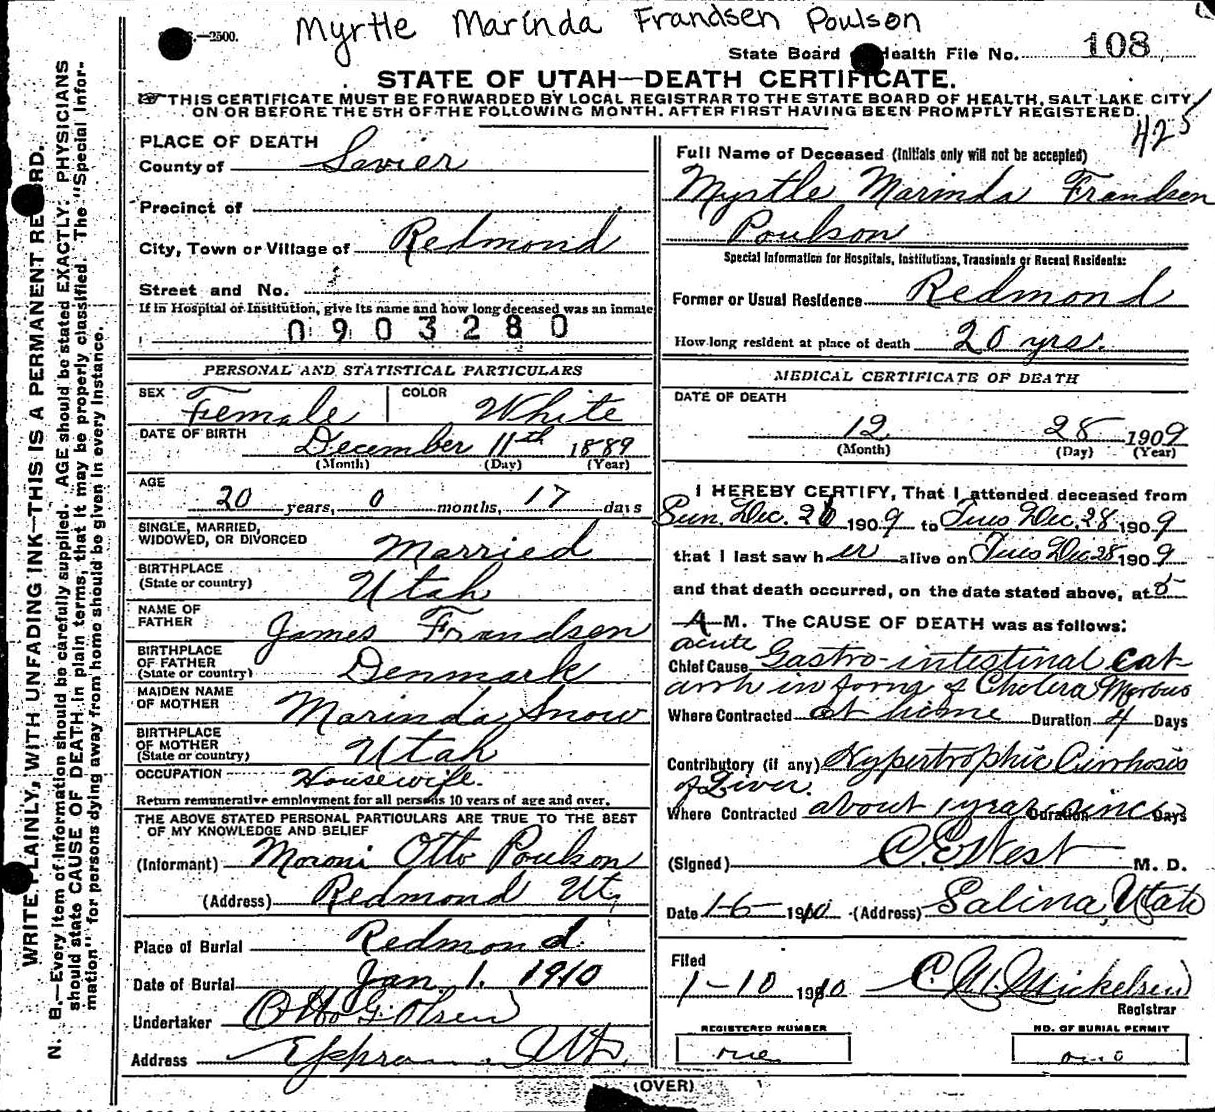 Myrtle Marinda Frandsen Poulson
—2500.
State Board of Health File No. 108
STATE OF UTAH—DEATH CERTIFICATE.
THIS CERTIFICATE MUST BE FORWARDED BY LOCAL REGISTRAR TO THE STATE BOARD OF HEALTH, SALT LAKE CITY,
ON OR BEFORE THE 5TH OF THE FOLLOWING MONTH. AFTER FIRST HAVING BEEN PROMPTLY REGISTERED.
425
WRITE PLAINLY, WITH UNFADING INK—THIS IS A PERMANENT RECORD.
N. B.—Every item of information should be carefully supplied. AGE should be stated EXACTLY. PHYSICIANS
should state CAUSE OF DEATH in plain terms, that it may be properly classified. The "Special Infor-
mation" for persons dying away from home should be given in every instance.
PLACE OF DEATH
County of Sevier
Precinct of
City, Town or Village of Redmond
Street and No.
If in Hospital or Institution, give its name and how long deceased was an inmate
0903280
PERSONAL AND STATISTICAL PARTICULARS
SEX Female COLOR White
DATE OF BIRTH December 11th 1889
(Month) (Day) (Year)
AGE
20 years, 0 months, 17 days
SINGLE, MARRIED,
WIDOWED, OR DIVORCED Married
BIRTHPLACE
(State or country) Utah
NAME OF
FATHER James Frandsen
BIRTHPLACE
OF FATHER
(State or country) Denmark
MAIDEN NAME
OF MOTHER Marinda Snow
BIRTHPLACE
OF MOTHER
(State or country) Utah
OCCUPATION Housewife.
Return remunerative employment for all persons 10 years of age and over.
THE ABOVE STATED PERSONAL PARTICULARS ARE TRUE TO THE BEST
OF MY KNOWLEDGE AND BELIEF
(Informant) Moroni Otto Poulson
(Address) Redmond Ut,
Place of Burial Redmond
Date of Burial Jan. 1. 1910
Undertaker Otto G. Olsen
Address Ut.
Full Name of Deceased (Initials only will not be accepted)
Myrtle Marinda Frandsen
Poulson
Special Information for Hospitals, Institutions, Transients or Recent Residents:
Former or Usual Residence Redmond
How long resident at place of death 20 yrs.
MEDICAL CERTIFICATE OF DEATH
DATE OF DEATH
12 28 1909
(Month) (Day) (Year)
I HEREBY CERTIFY, That I attended deceased from
Sun. Dec. 26 1909 to Tues Dec. 28 1909
that I last saw her alive on Tues Dec 28 1909
and that death occurred, on the date stated above, at 5
A M. The CAUSE OF DEATH was as follows:
acute
Chief Cause Gastro-intestinal cat-
arrh in form of Cholera Morbus
Where Contracted at home Duration 4 Days
Contributory (if any) Hypertrophic Cirrhosis
of Liver.
Where Contracted about 1 year since Duration Days
(Signed) C. E. West M. D.
Date 1-6- 1910 (Address) Salina, Utah
Filed
1-10 1910 C. W. Mickelsen
Registrar
REGISTERED NUMBER
one
NO. OF BURIAL PERMIT
one
(OVER)